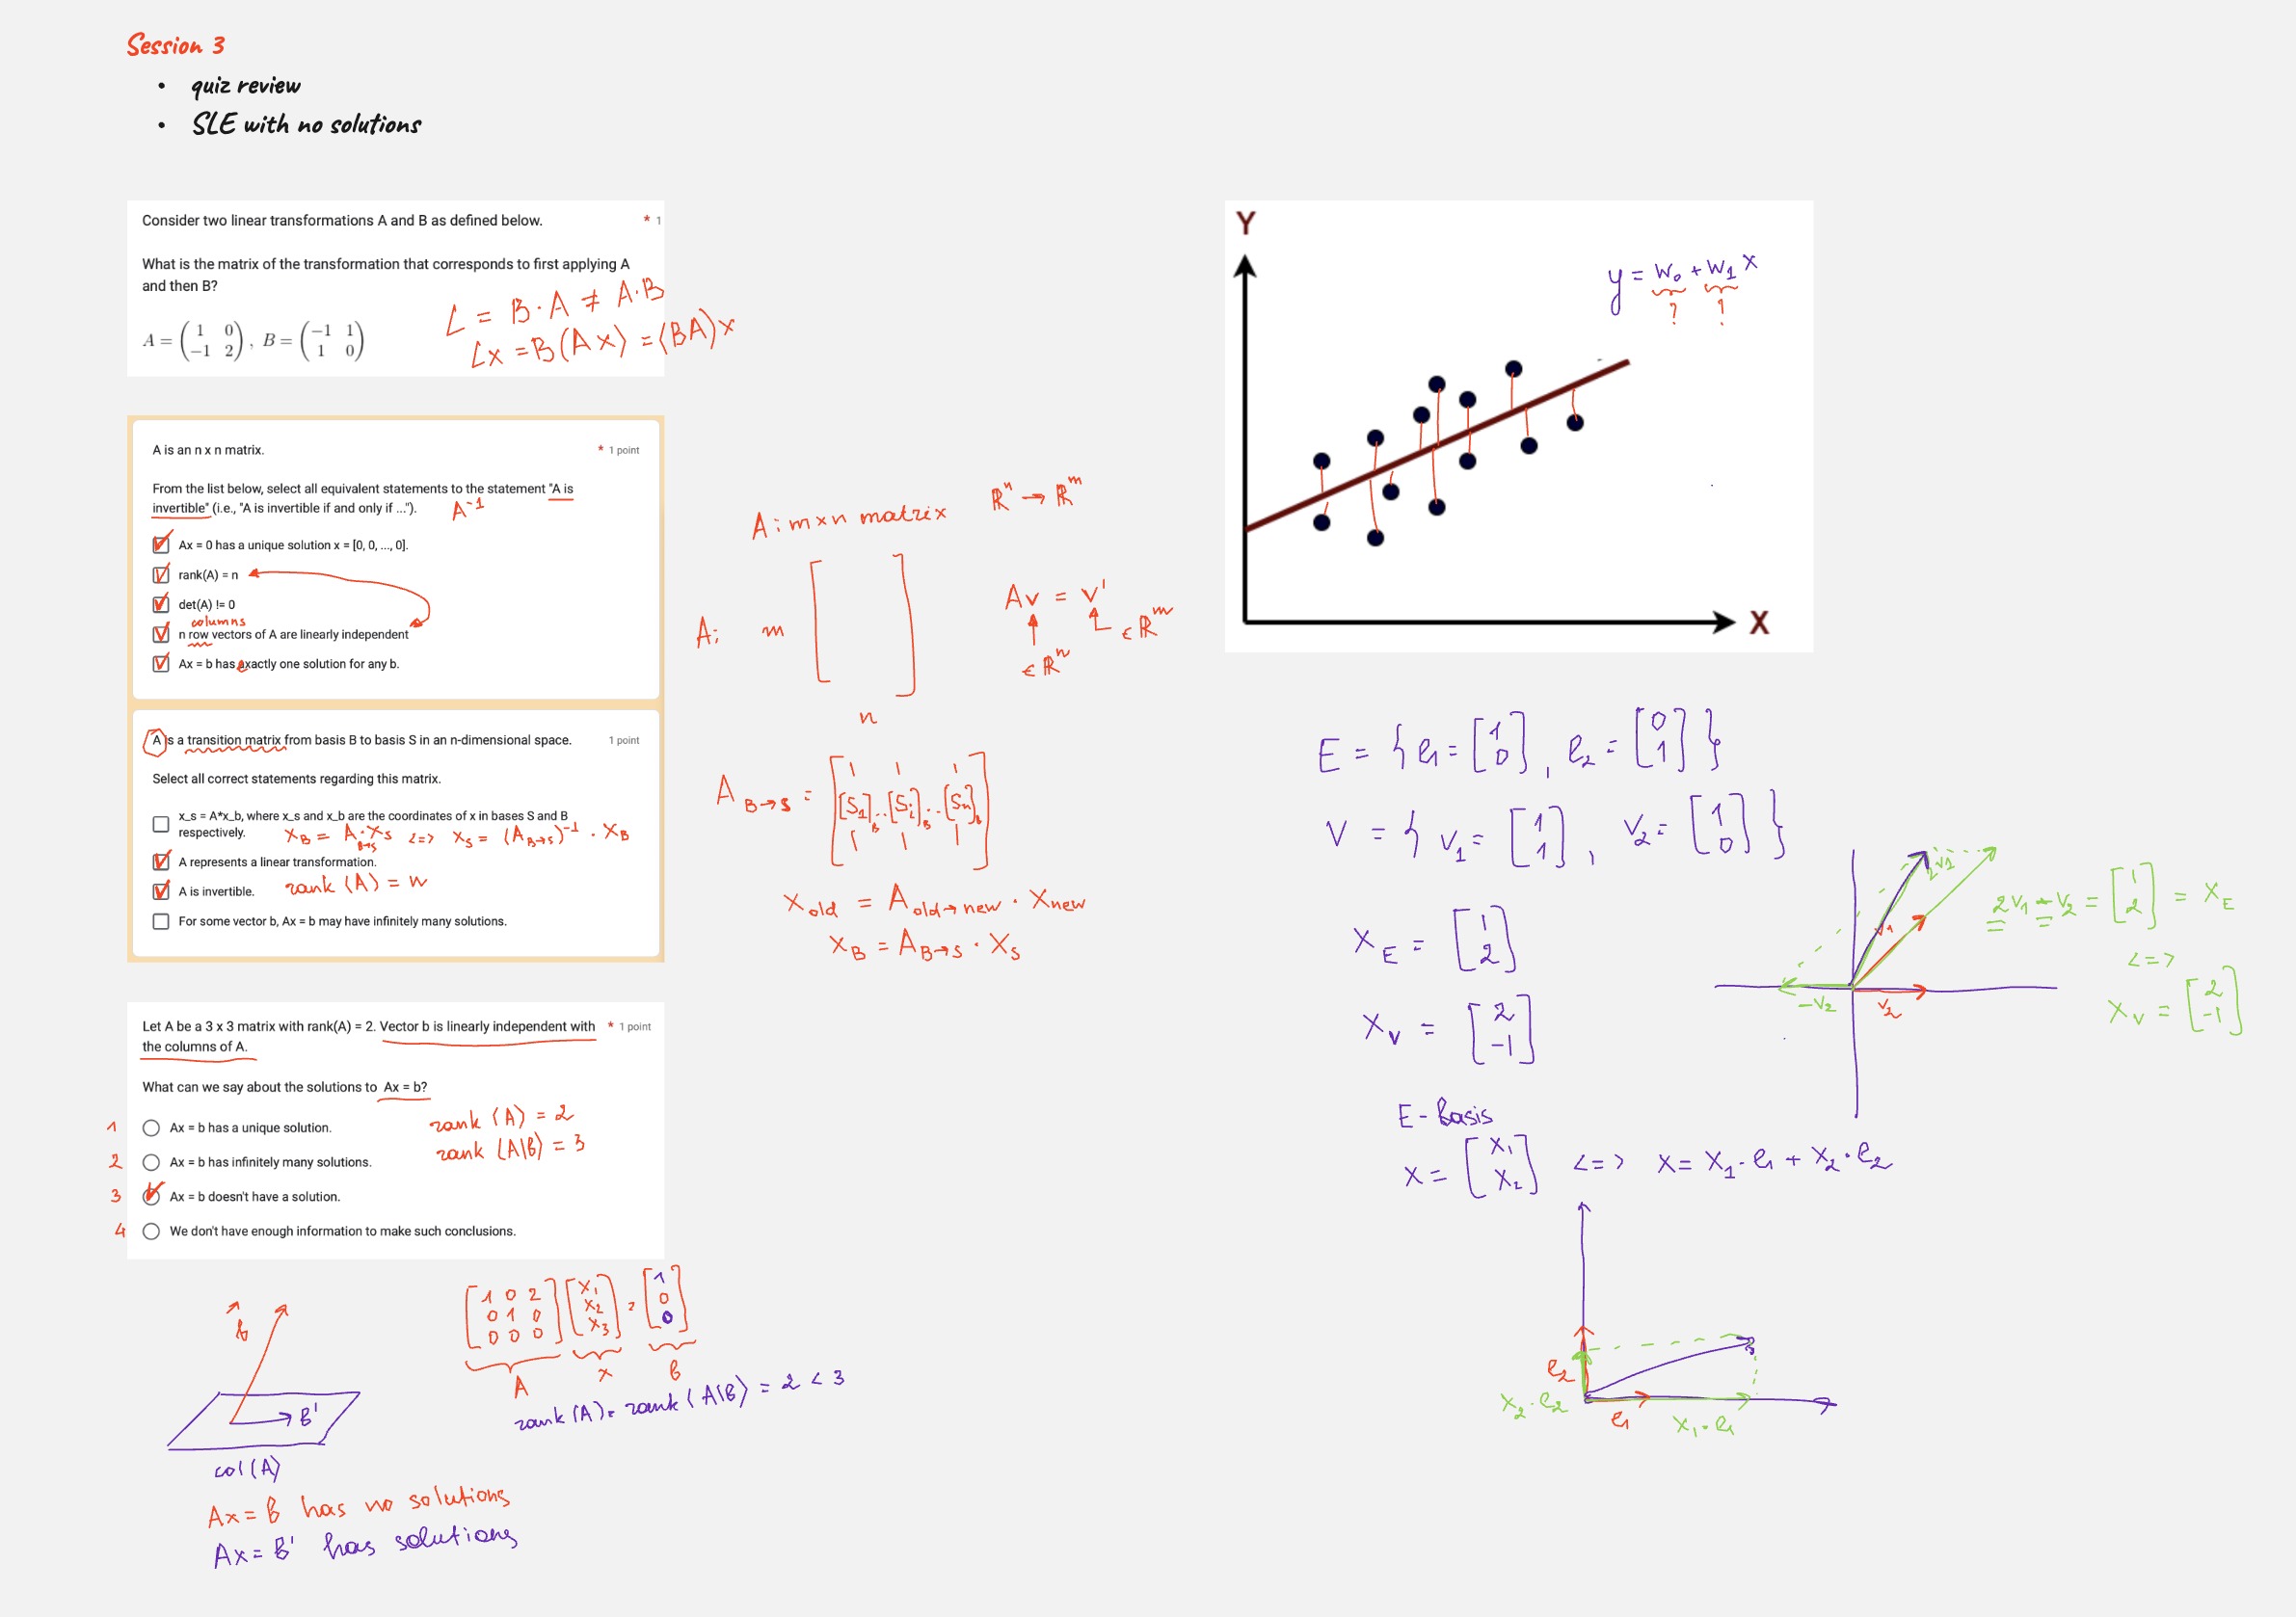 Session 3
• quiz review
• SLE with no solutions
Consider two linear transformations A and B as defined below.
* 1
What is the matrix of the transformation that corresponds to first applying A
and then B?
A = (1 0 -1 2), B = (-1 1 1 0)
L = B·A ≠ A·B
Lx = B(Ax) = (BA)x
A is an n x n matrix.
* 1 point
From the list below, select all equivalent statements to the statement "A is
invertible" (i.e., "A is invertible if and only if ...").
A⁻¹
Ax = 0 has a unique solution x = [0, 0, ..., 0].
rank(A) = n
det(A) != 0
columns
n row vectors of A are linearly independent
Ax = b has exactly one solution for any b.
A is a transition matrix from basis B to basis S in an n-dimensional space.
1 point
Select all correct statements regarding this matrix.
x_s = A*x_b, where x_s and x_b are the coordinates of x in bases S and B
respectively.
X_B = A_B→S · X_S <=> X_S = (A_B→S)⁻¹ · X_B
A represents a linear transformation.
A is invertible.
rank (A) = n
For some vector b, Ax = b may have infinitely many solutions.
Let A be a 3 x 3 matrix with rank(A) = 2. Vector b is linearly independent with
* 1 point
the columns of A.
What can we say about the solutions to Ax = b?
1 Ax = b has a unique solution.
2 Ax = b has infinitely many solutions.
3 Ax = b doesn't have a solution.
4 We don't have enough information to make such conclusions.
rank (A) = 2
rank (A|b) = 3
b
b'
col(A)
Ax = b has no solutions
Ax = b' has solutions
[1 0 2
0 1 0
0 0 0] [x₁ x₂ x₃] = [1 0 0]
A
x
b
rank (A) = rank (A|b) = 2 < 3
A: m×n matrix
Rⁿ → Rᵐ
A:
m
n
Av = v'
∈ Rⁿ
∈ Rᵐ
A_B→S = [[S₁]_B .. [Sᵢ]_B .. [Sₙ]_B]
X_old = A_old→new · X_new
X_B = A_B→S · X_S
Y
y = w₀ + w₁ x
? ?
X
E = { e₁ = [1 0], e₂ = [0 1] }
V = { v₁ = [1 1], v₂ = [1 0] }
X_E = [1 2]
X_V = [2 -1]
2v₁
v₁
-v₂
v₂
2v₁ - v₂ = [1 2] = X_E
<=>
X_V = [2 -1]
E - basis
x = [x₁ x₂] <=> x = x₁·e₁ + x₂·e₂
e₂
x₂·e₂
e₁
x₁·e₁